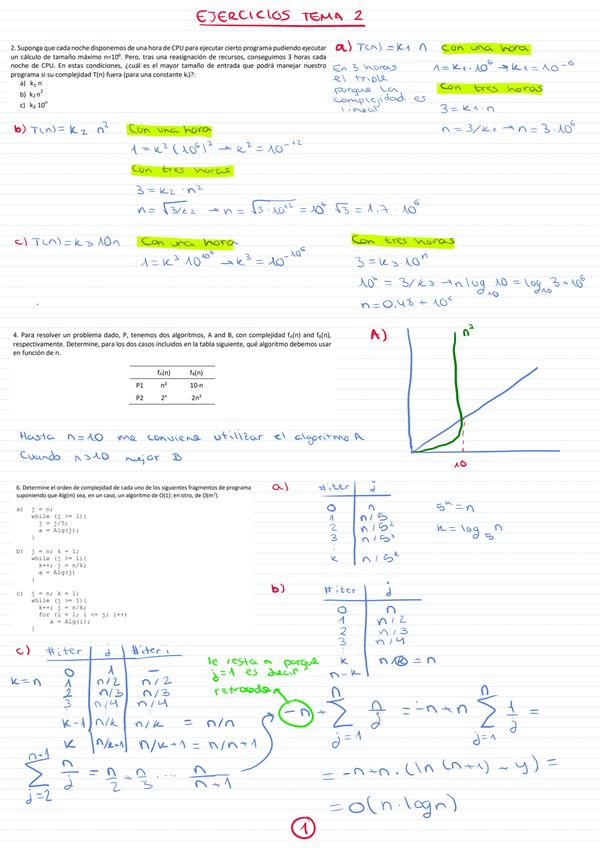 EJERCICIOS TEMA 2
2. Suponga que cada noche disponemos de una hora de CPU para ejecutar cierto programa pudiendo ejecutar
un cálculo de tamaño máximo n=10⁶. Pero, tras una reasignación de recursos, conseguimos 3 horas cada
noche de CPU. En estas condiciones, ¿cuál es el mayor tamaño de entrada que podrá manejar nuestro
programa si su complejidad T(n) fuera (para una constante kᵢ)?:
a) k₁ n
b) k₂ n²
c) k₃ 10ⁿ
a) T(n) = k₁ n
Con una hora
En 3 horas
el triple
porque la
complejidad es
lineal
1 = k₁ · 10⁶ → k₁ = 10⁻⁶
Con tres horas
3 = k₁ · n
n = 3/k₁ → n = 3 · 10⁶
b) T(n) = k₂ · n²
Con una hora
1 = k² (10⁶)² → k² = 10⁻¹²
Con tres horas
3 = k₂ · n²
n = √3/k₂ → n = √3 · 10¹² = 10⁶ √3 = 1,7 · 10⁶
c) T(n) = k₃ 10n
Con una hora
1 = k³ 10^10⁶ → k³ = 10^-10⁶
Con tres horas
3 = k₃ · 10ⁿ
10ⁿ = 3/k₃ → n log₁₀ 10 = log₁₀ 3 + 10⁶
n = 0,48 + 10⁶
4. Para resolver un problema dado, P, tenemos dos algoritmos, A and B, con complejidad fₐ(n) and fᵦ(n),
respectivamente. Determine, para los dos casos incluidos en la tabla siguiente, qué algoritmo debemos usar
en función de n.
fₐ(n) fᵦ(n)
P1 n² 10·n
P2 2ⁿ 2n³
A)
n²
10
Hasta n=10 me conviene utilizar el algoritmo A
Cuando n>10 mejor B
6. Determine el orden de complejidad de cada uno de los siguientes fragmentos de programa
suponiendo que Alg(m) sea, en un caso, un algoritmo de O(1); en otro, de O(m²).
a) j = n;
while (j >= 1){
j = j/5;
a = Alg(j);
}
b) j = n; k = 1;
while (j >= 1){
k++; j = n/k;
a = Alg(j)
}
c) j = n; k = 1;
while (j >= 1){
k++; j = n/k;
for (i = 1; i <= j; i++)
a = Alg(i);
}
a)
#iter j
0 n
1 n/5
2 n/5²
3 n/5³
k n/5ᵏ
5ᵏ = n
k = log₅ n
b)
#iter j
0 n
1 n/2
2 n/3
3 n/4
k n/k = n
n-k
c)
#iter j #iter i
k=n
0 1 –
1 n/2 n/2
2 n/3 n/3
3 n/4 n/4
k-1 n/k n/k = n/n
k n/k+1 n/k+1 = n/n+1
le resta n porque
j=1 es decir
retrocede
∑ⁿ⁺¹ⱼ₌₂ n/j = n/2 + n/3 ... n/n+1
-n + ∑ⁿⱼ₌₁ n/j = -n+n ∑ⁿⱼ₌₁ 1/j =
= -n+n · (ln (n+1) + γ) =
= O(n·logn)
1